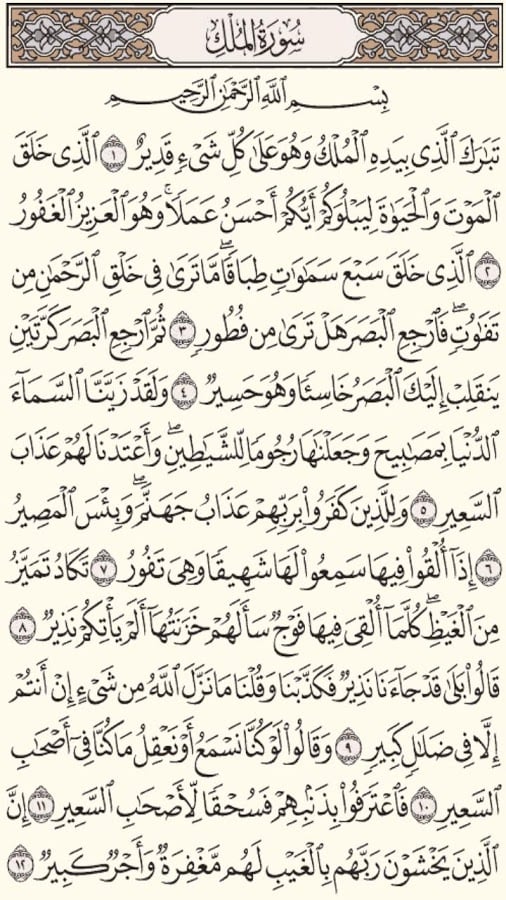 سُورَةُ الْمُلْكِ
بِسْمِ ٱللَّهِ ٱلرَّحْمَٰنِ ٱلرَّحِيمِ
تَبَٰرَكَ ٱلَّذِى بِيَدِهِ ٱلْمُلْكُ وَهُوَ عَلَىٰ كُلِّ شَىْءٍ قَدِيرٌ ١ ٱلَّذِى خَلَقَ
ٱلْمَوْتَ وَٱلْحَيَوٰةَ لِيَبْلُوَكُمْ أَيُّكُمْ أَحْسَنُ عَمَلًا ۚ وَهُوَ ٱلْعَزِيزُ ٱلْغَفُورُ
٢ ٱلَّذِى خَلَقَ سَبْعَ سَمَٰوَٰتٍ طِبَاقًا ۖ مَّا تَرَىٰ فِى خَلْقِ ٱلرَّحْمَٰنِ مِن
تَفَٰوُتٍ ۖ فَٱرْجِعِ ٱلْبَصَرَ هَلْ تَرَىٰ مِن فُطُورٍ ٣ ثُمَّ ٱرْجِعِ ٱلْبَصَرَ كَرَّتَيْنِ
يَنقَلِبْ إِلَيْكَ ٱلْبَصَرُ خَاسِئًا وَهُوَ حَسِيرٌ ٤ وَلَقَدْ زَيَّنَّا ٱلسَّمَآءَ
ٱلدُّنْيَا بِمَصَٰبِيحَ وَجَعَلْنَٰهَا رُجُومًا لِّلشَّيَٰطِينِ ۖ وَأَعْتَدْنَا لَهُمْ عَذَابَ
ٱلسَّعِيرِ ٥ وَلِلَّذِينَ كَفَرُوا۟ بِرَبِّهِمْ عَذَابُ جَهَنَّمَ ۖ وَبِئْسَ ٱلْمَصِيرُ
٦ إِذَآ أُلْقُوا۟ فِيهَا سَمِعُوا۟ لَهَا شَهِيقًا وَهِىَ تَفُورُ ٧ تَكَادُ تَمَيَّزُ
مِنَ ٱلْغَيْظِ ۖ كُلَّمَآ أُلْقِىَ فِيهَا فَوْجٌ سَأَلَهُمْ خَزَنَتُهَآ أَلَمْ يَأْتِكُمْ نَذِيرٌ ٨
قَالُوا۟ بَلَىٰ قَدْ جَآءَنَا نَذِيرٌ فَكَذَّبْنَا وَقُلْنَا مَا نَزَّلَ ٱللَّهُ مِن شَىْءٍ إِنْ أَنتُمْ
إِلَّا فِى ضَلَٰلٍ كَبِيرٍ ٩ وَقَالُوا۟ لَوْ كُنَّا نَسْمَعُ أَوْ نَعْقِلُ مَا كُنَّا فِىٓ أَصْحَٰبِ
ٱلسَّعِيرِ ١٠ فَٱعْتَرَفُوا۟ بِذَنۢبِهِمْ فَسُحْقًا لِّأَصْحَٰبِ ٱلسَّعِيرِ ١١ إِنَّ
ٱلَّذِينَ يَخْشَوْنَ رَبَّهُم بِٱلْغَيْبِ لَهُم مَّغْفِرَةٌ وَأَجْرٌ كَبِيرٌ ١٢